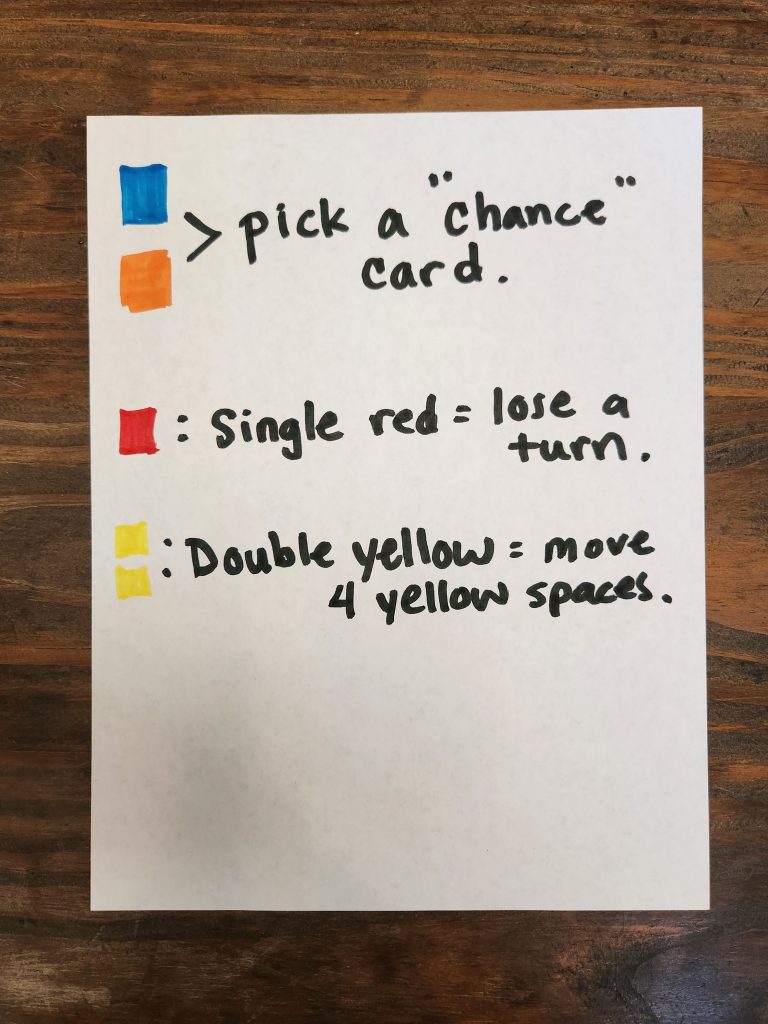 > pick a "chance"
card.
: Single red = lose a
turn.
: Double yellow = move
4 yellow spaces.